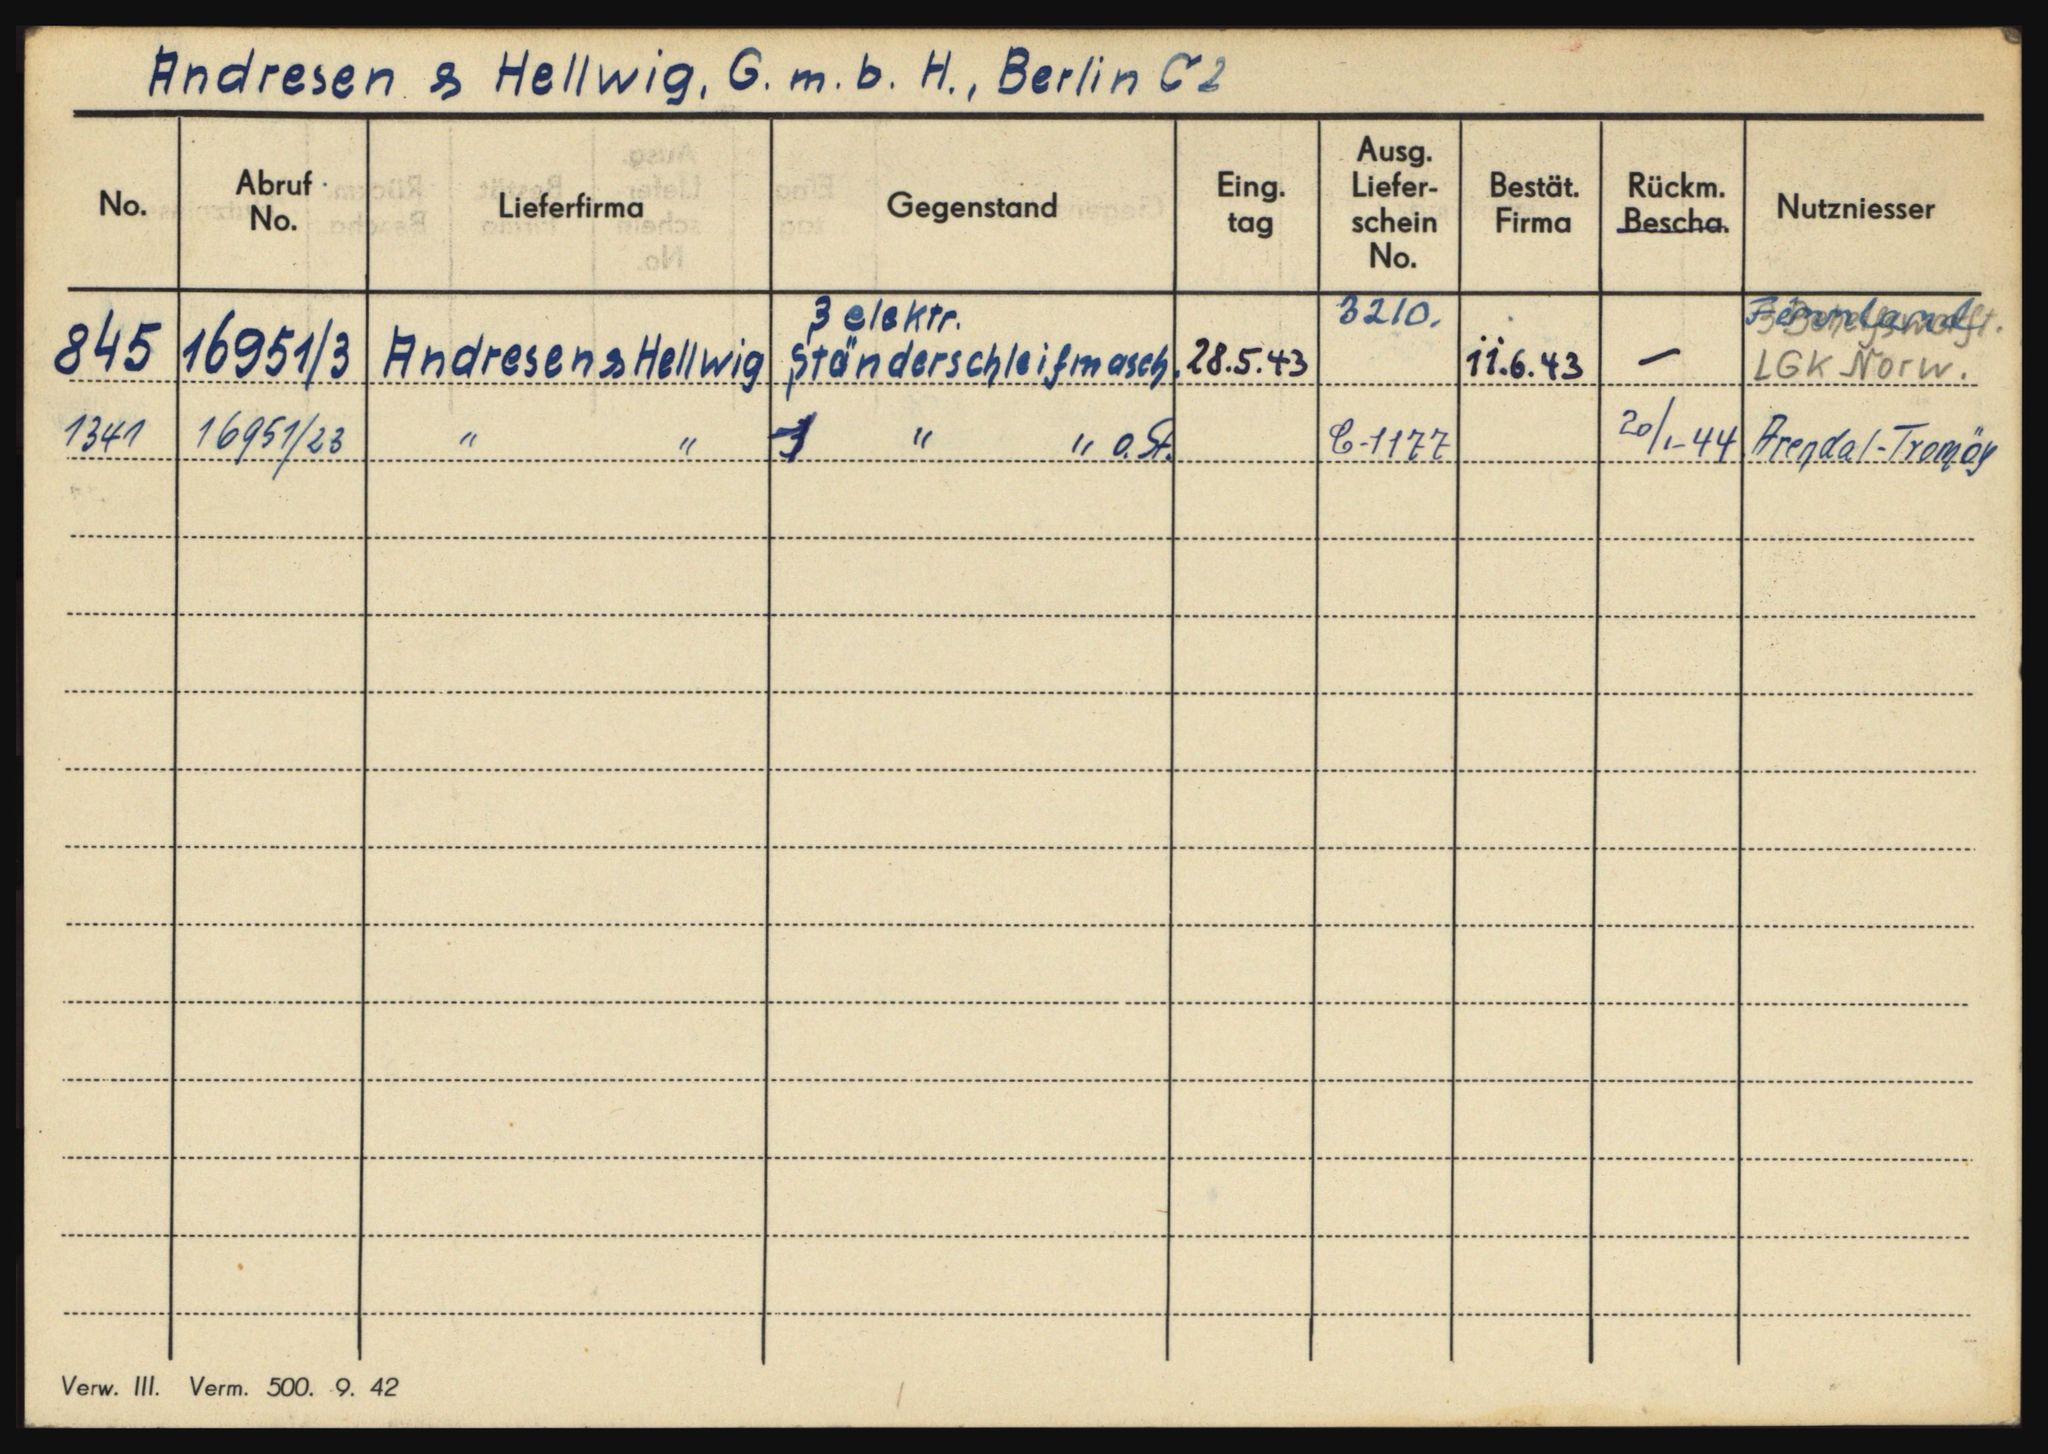 Andresen & Hellwig, G. m. b. H., Berlin C 2
No. Abruf No. Lieferfirma Gegenstand Eing. tag Ausg. Liefer- schein No. Bestät. Firma Rückm. Bescha. Nutzniesser
3 elektr. 3210.
845 16951/3 Andresen & Hellwig Ständerschleifmasch. 28.5.43 11.6.43 — LGK Norw.
1341 16951/23 " " " " o. St. C-1177 20/1-44 Arendal-Tromöy
Verw. III. Verm. 500. 9. 42